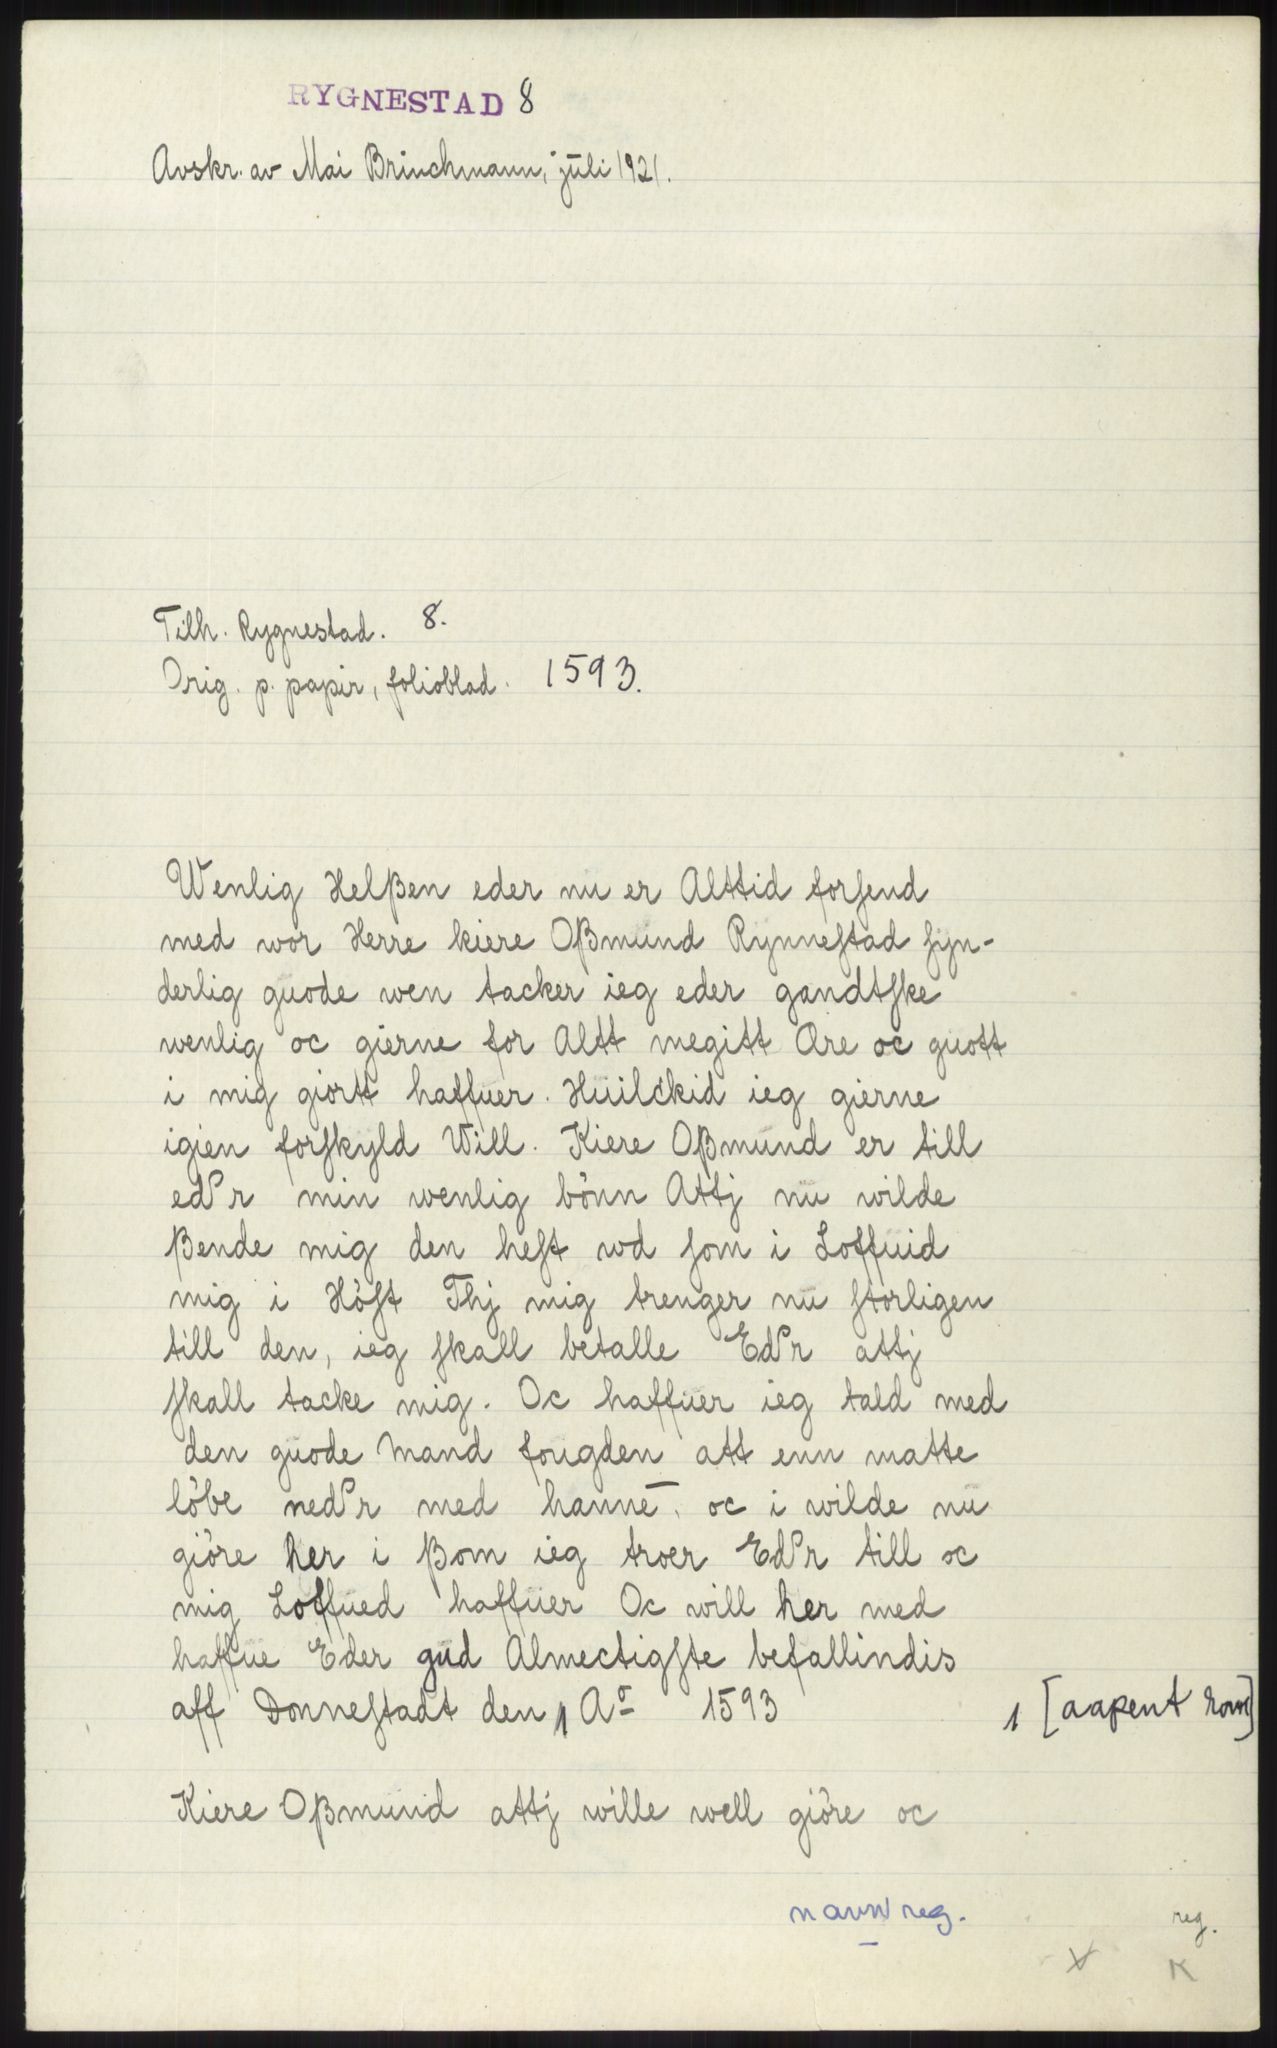 RYGNESTAD 8
Avskr. av Mai Brinchmann, juli 1921.
Tilh. Rygnestad. 8.
Orig. p. papir, folioblad. 1593.
Wenlig Helßen eder nu er Alttid forſend
med wor Herre kiere Oßmund Rynneſtad ſyn-
derlig guode wen tacker ieg eder gandtſke
wenlig oc gierne for Altt megitt Ære oc guott
i mig giortt haffuer. Huilckid ieg gierne
igien forſkyld Will. Kiere Oßmund er till
edr min wenlig bönn Attj nu wilde
ßende mig den heſt wd ſom i Loffuid
mig i Höſt Thj mig trenger nu ſtorligen
till den, ieg ſkall betalle Edr attj
ſkall tacke mig. Oc haffuer ieg tald med
den guode Mand fougden att enn matte
löbe nedr med hannē. oc i wilde nu
giöre her i ßom ieg troer Edr till oc
mig Loffued haffuer Oc will her med
haffue Eder gud Almectigſte befallindis
aff Donneſtadt den 1 Aº 1593
1 [aapent rom]
Kiere Oßmund attj wille well giöre oc
navnreg.
reg.